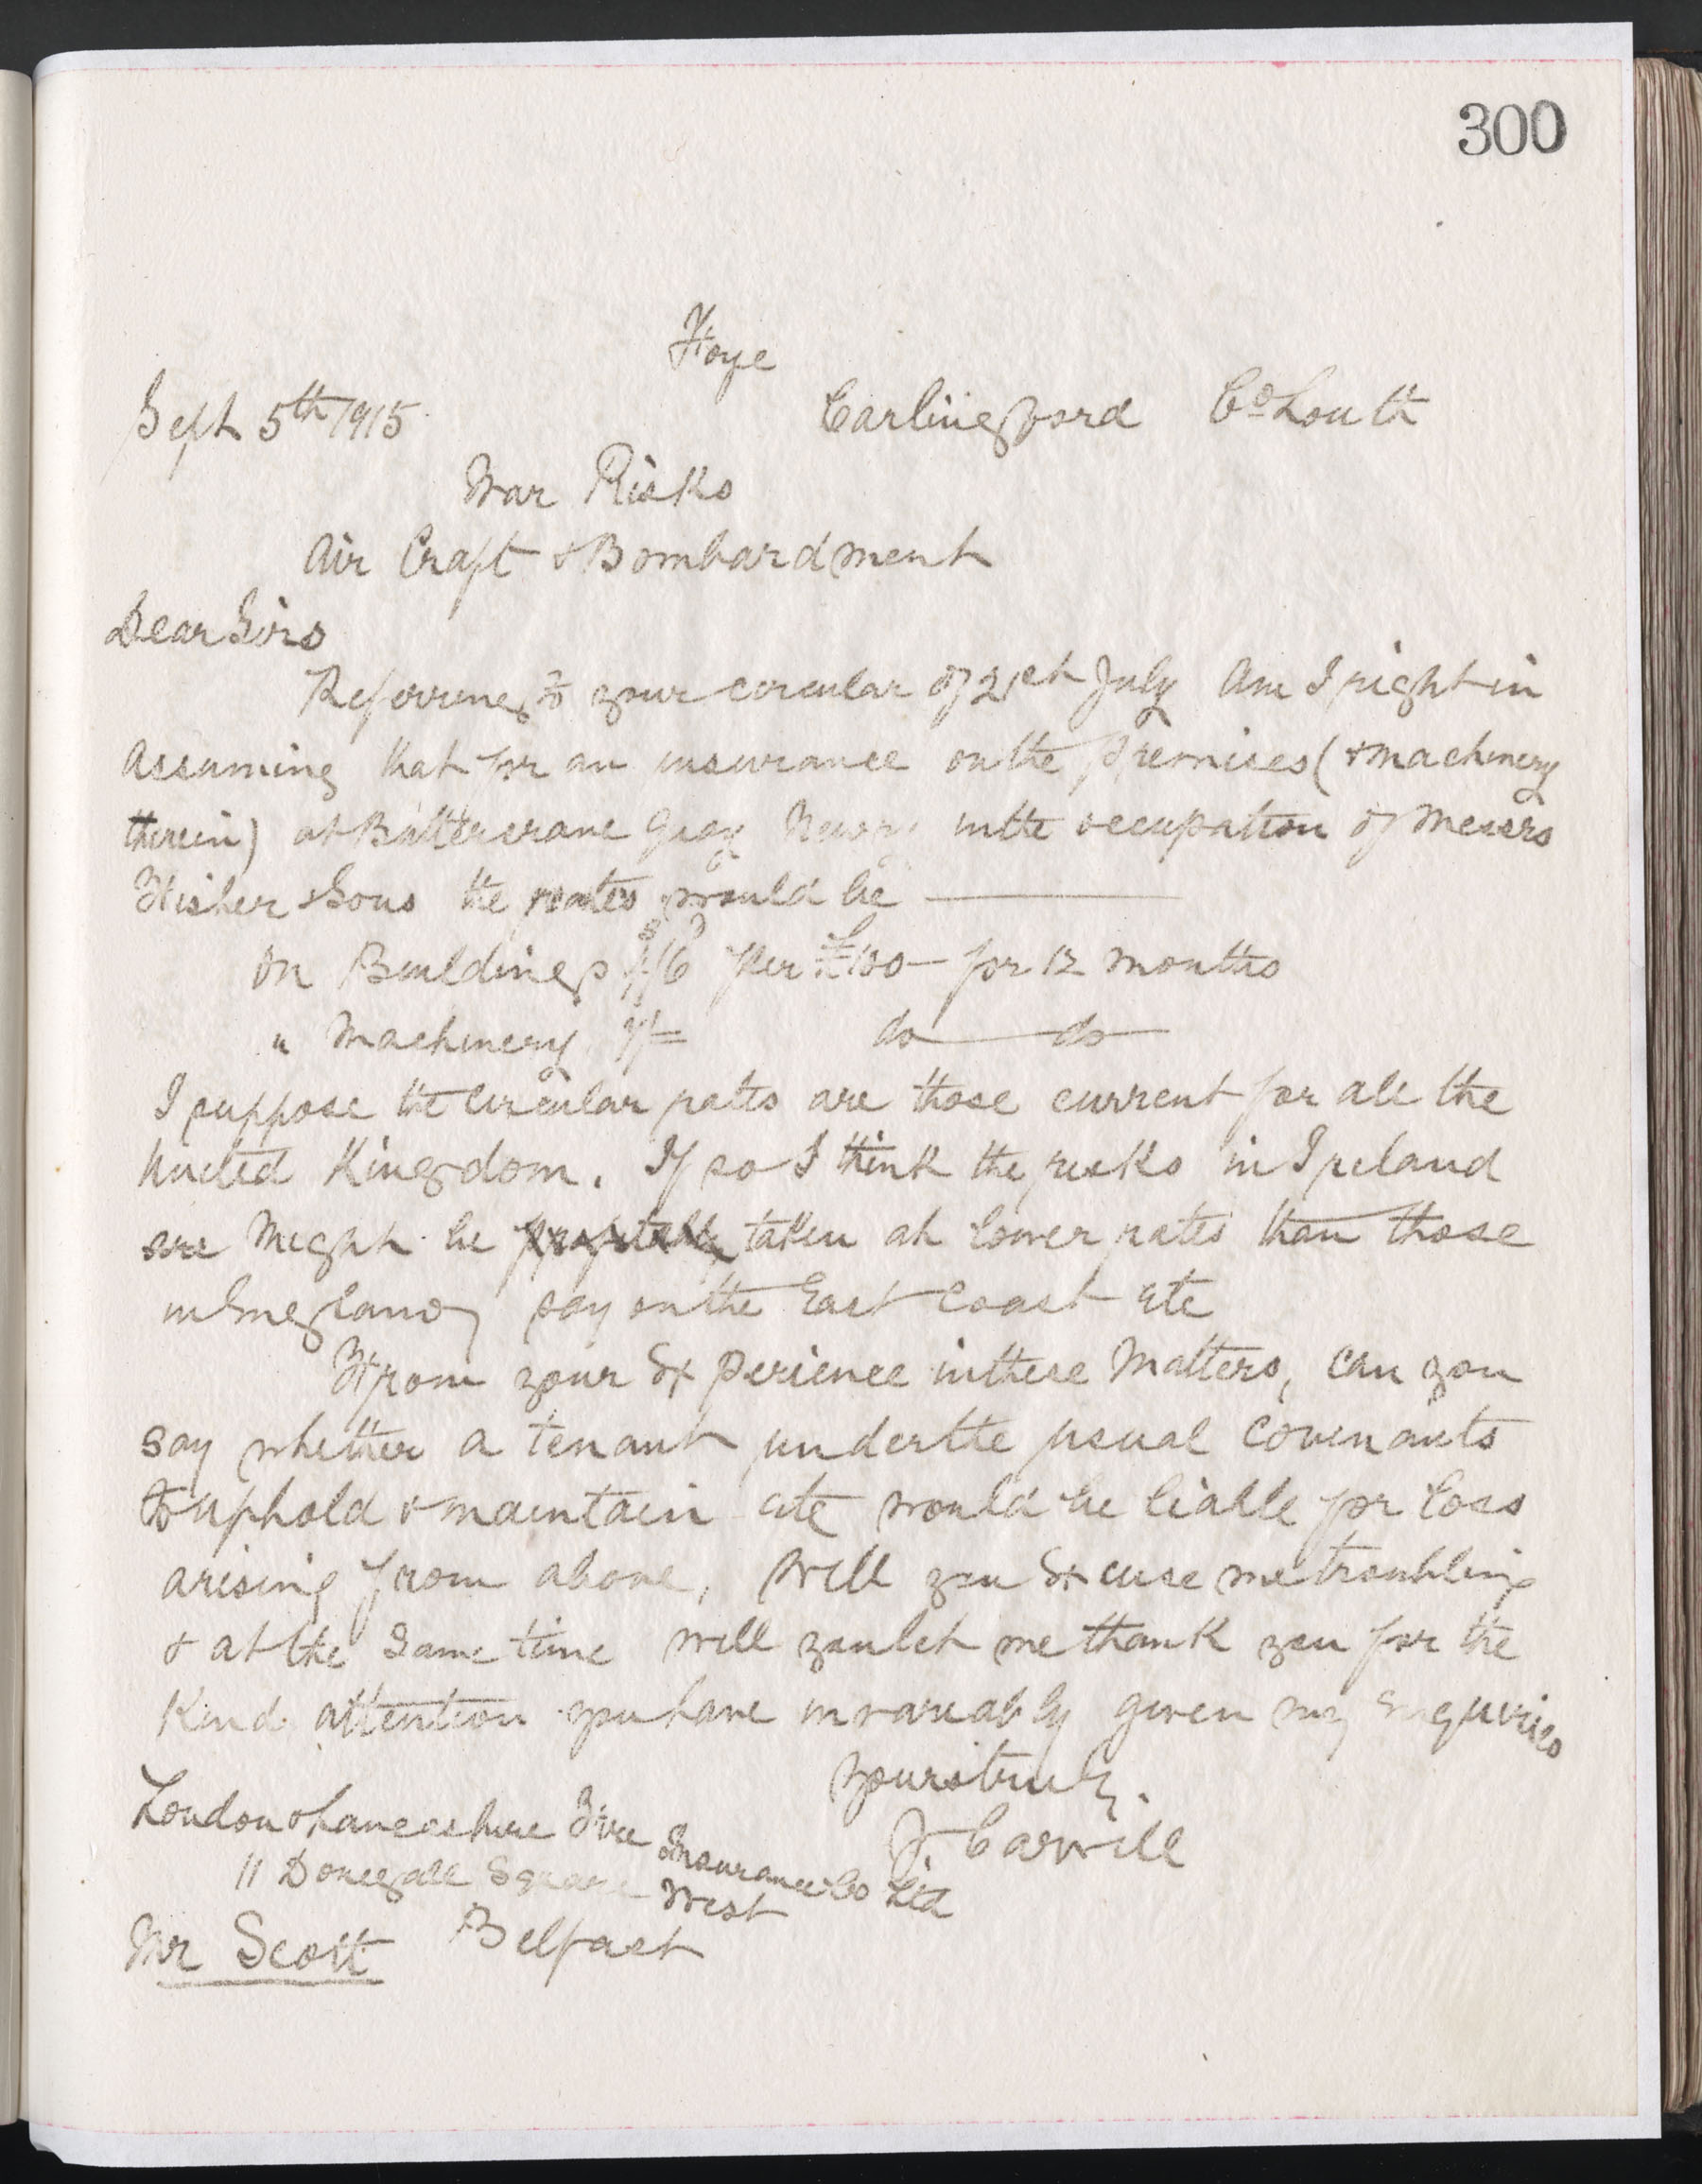 300
Foye
Sept 5th 1915
Carlingford Co Louth
War Risks
Air Craft & Bombardment
Dear Sirs
Referring to your circular of 21st July Am I right in
assuming that for an insurance on the premises (& machinery
therein) at Buttercrane Quay Newry in the occupation of Messrs
Fisher & Sons the rates would be
s d
On Buildings /6 per £100 — for 12 months
" Machinery do — do
I suppose the circular rates are those current for all the
United Kingdom. If so I think the risks in Ireland
are might be profitably taken at lower rates than those
in England say on the East Coast etc
From your Experience in these Matters, can you
say whether a tenant under the usual covenants
to uphold & maintain etc would be liable for loss
arising from above, Will you Excuse me troubling
& at the same time will you let me thank you for the
Kind attention you have invariably given my Enquiries
Yours truly.
J. Carvill
London & Lancashire Fire Insurance Co Ltd
11 Donegall Square West
Mr Scott Belfast